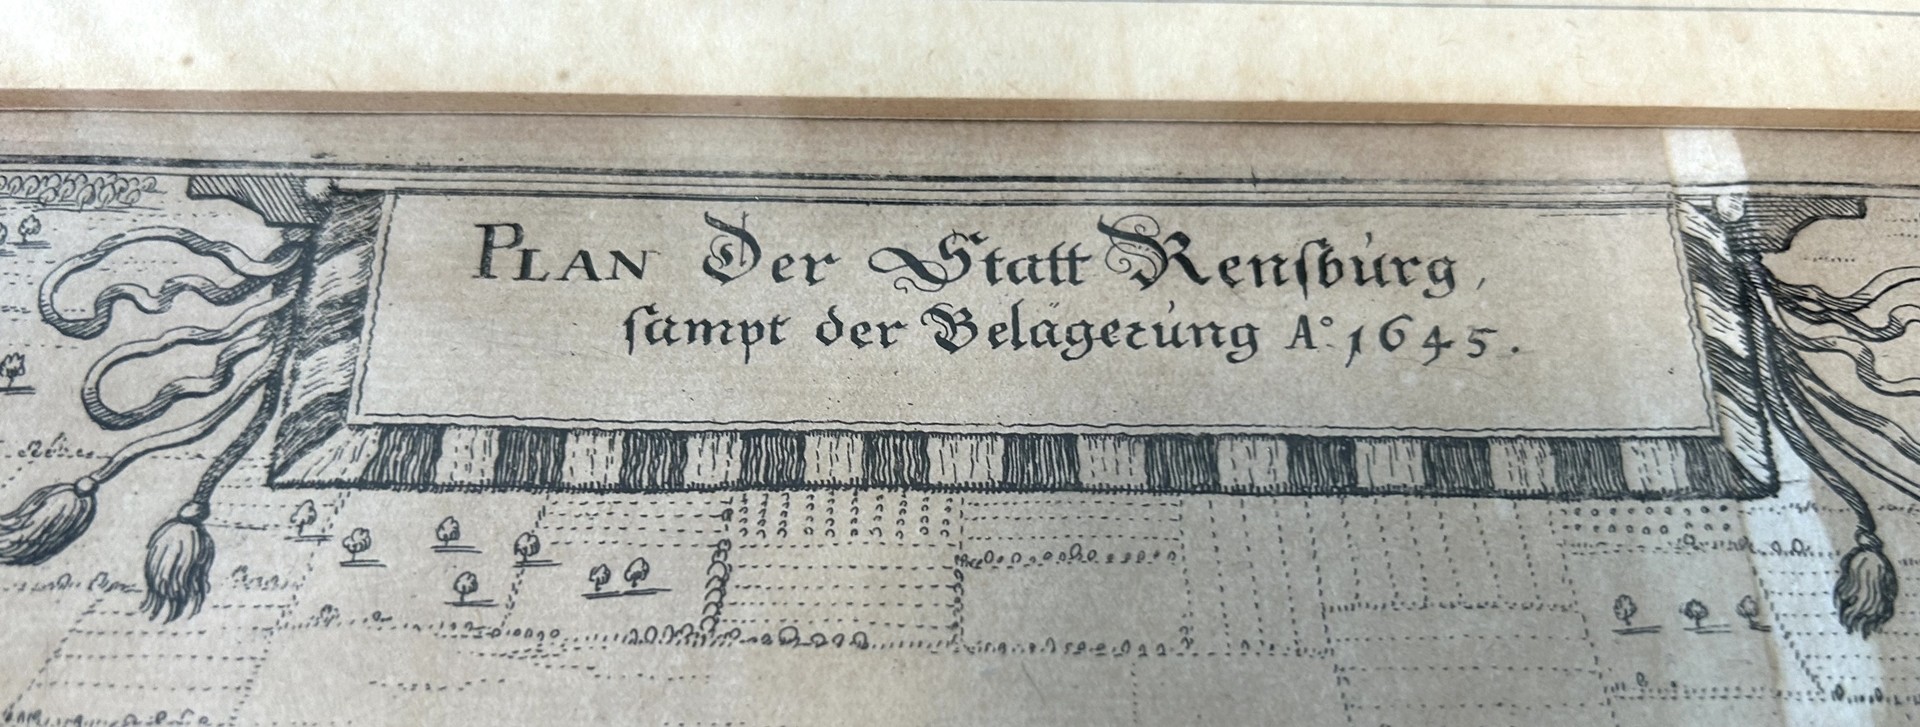 PLAN Der Statt Rensburg,
sampt der Belägerung Aº 1645.